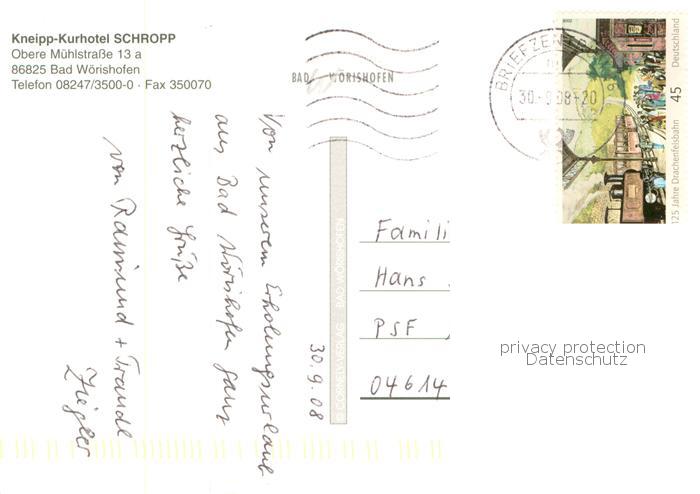 Kneipp-Kurhotel SCHROPP
Obere Mühlstraße 13 a
86825 Bad Wörishofen
Telefon 08247/3500-0 · Fax 350070
BAD WÖRISHOFEN
Von unserem Erholungsurlaub
aus Bad Wörishofen ganz
herzliche Grüße
von Raimund + Traudl
Ziegler
30.9.08
CORNELIVERLAG BAD WÖRISHOFEN
BRIEFZEN
30.-9.08-20
Deutschland
45
125 Jahre Drachenfelsbahn
Famili
Hans
PSF
04614
privacy protection
Datenschutz